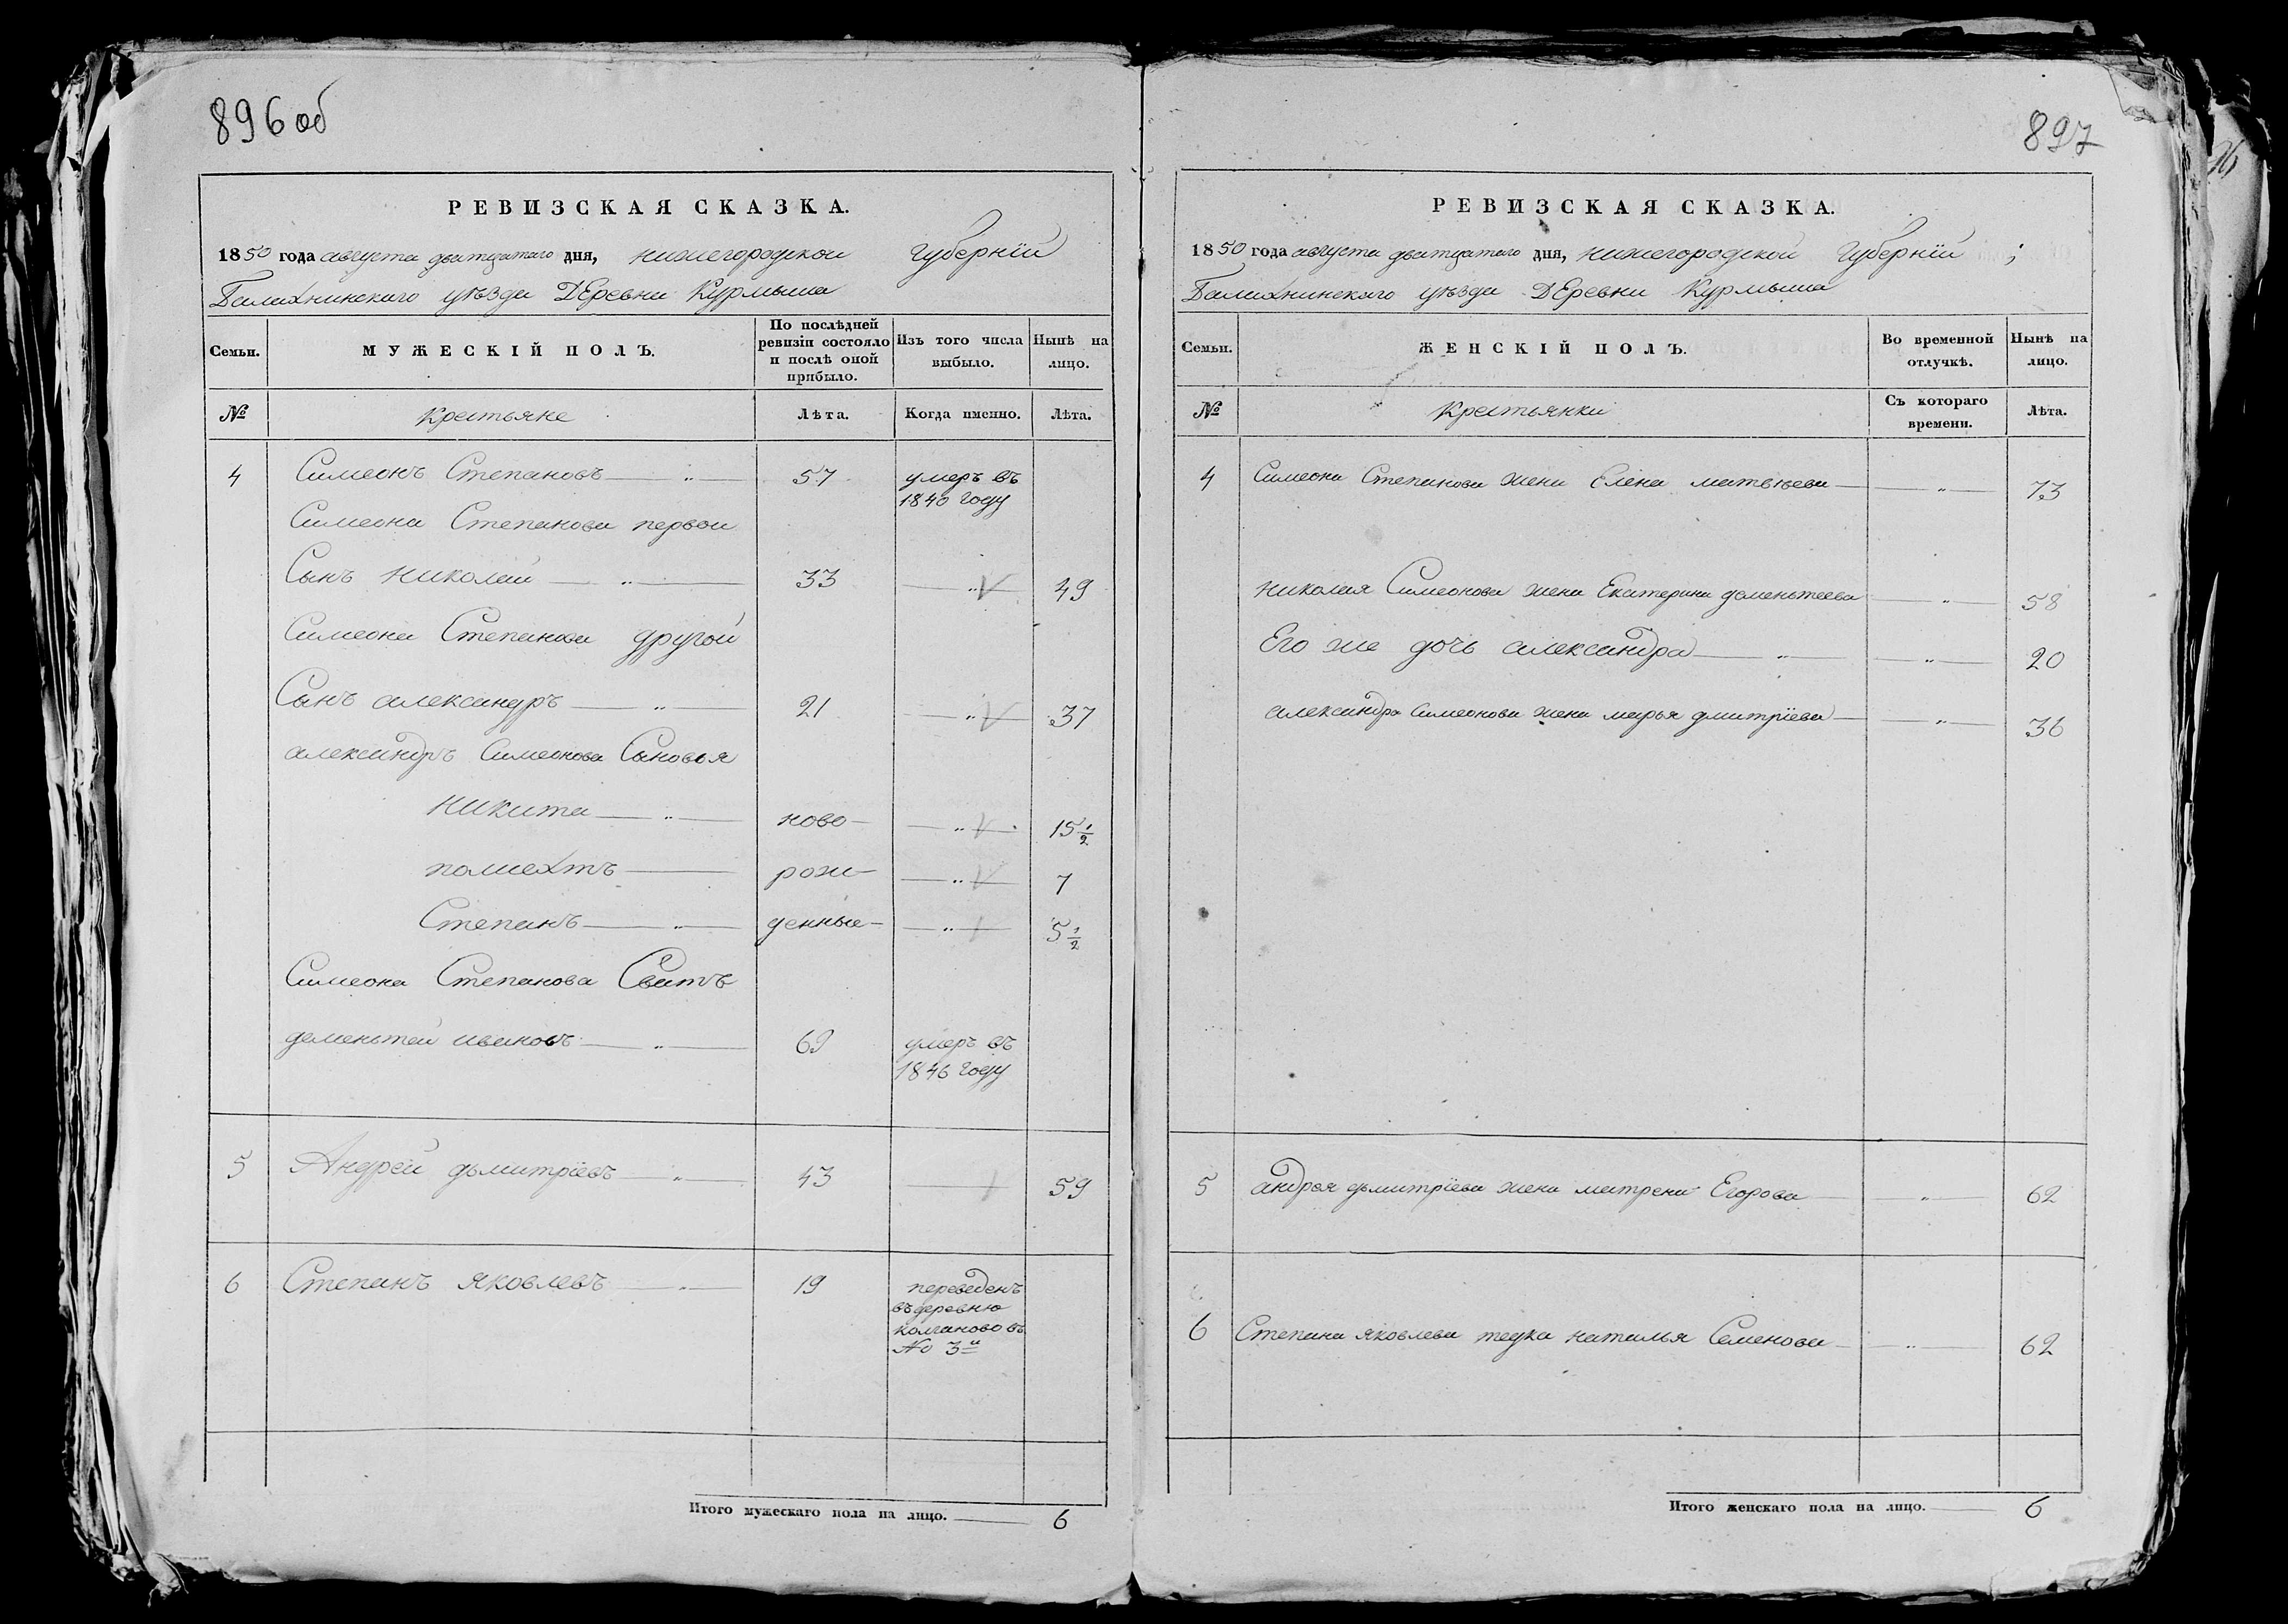 896 об
РЕВИЗСКАЯ СКАЗКА.
1850 года августа дватцатаго дня, нижегородской губернїи
Балахнинскаго уѣзда ДЕревни Курмыша
Семьи.
МУЖЕСКІЙ ПОЛЪ.
По послѣдней ревизіи состояло и послѣ оной прибыло.
Изъ того числа выбыло.
Нынѣ на лицо.
№
Крестьяне
Лѣта.
Когда именно.
Лѣта.
4 Симеонъ Степановъ — „ — 57 умеръ въ
1840 году
Симеона Степанова первой
Сынъ николай — „ — 33 — „ — 49
Симеона Степанова другой
Сынъ александръ — „ — 21 — „ — 37
александръ Симеонова Сыновья
никита — „ — ново— — „ — 15 1/2
полиехтъ — рож— — „ — 7
Степанъ — „ — денные— — „ — 5 1/2
Симеона Степанова Сватъ
деменьтей ивановъ — „ — 69 умеръ въ
1846 году
5 Андрей дьмитрїевъ — „ — 43 — 59
6 Степанъ яковлевъ — „ — 19 переведенъ
въ деревню
колганово въ
№ 3й
Итого мужескаго пола на лицо. — 6
897
РЕВИЗСКАЯ СКАЗКА.
1850 года августа дватцатаго дня, нижегородской губернїи ;
Балахнинскаго уѣзда ДЕревни Курмыша
Семьи.
ЖЕНСКІЙ ПОЛЪ.
Во временной отлучкѣ.
Нынѣ на лицо.
№
Крестьянки
Съ котораго времени.
Лѣта.
4 Симеона Степанова жена Елена матвѣева — — „ — 73
николая Симеонова жена Екатерина деменьтеева — „ — 58
Его же дочь александра — „ — — „ — 20
александра Симеонова жена марья дмитрїева — — „ — 36
5 андрея дьмитрїева жена матрена Егорова — „ — 62
6 Степана яковлева тецка наталья Семенова — — „ — 62
Итого женскаго пола на лицо. — 6